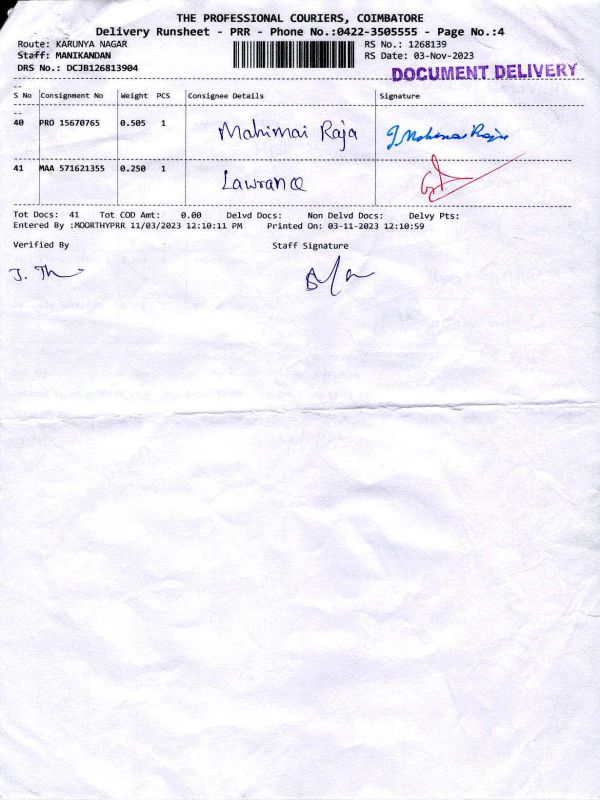 THE PROFESSIONAL COURIERS, COIMBATORE
Delivery Runsheet - PRR - Phone No.:0422-3505555 - Page No.:4
Route: KARUNYA NAGAR RS No.: 1268139
Staff: MANIKANDAN RS Date: 03-Nov-2023
DRS No.: DCJB126813904 DOCUMENT DELIVERY
S No Consignment No Weight PCS Consignee Details Signature
40 PRO 15670765 0.505 1 Mahimai Raja
41 MAA 571621355 0.250 1 Lawrance
Tot Docs: 41 Tot COD Amt: 0.00 Delvd Docs: Non Delvd Docs: Delvy Pts:
Entered By :MOORTHYPRR 11/03/2023 12:10:11 PM Printed On: 03-11-2023 12:10:59
Verified By Staff Signature